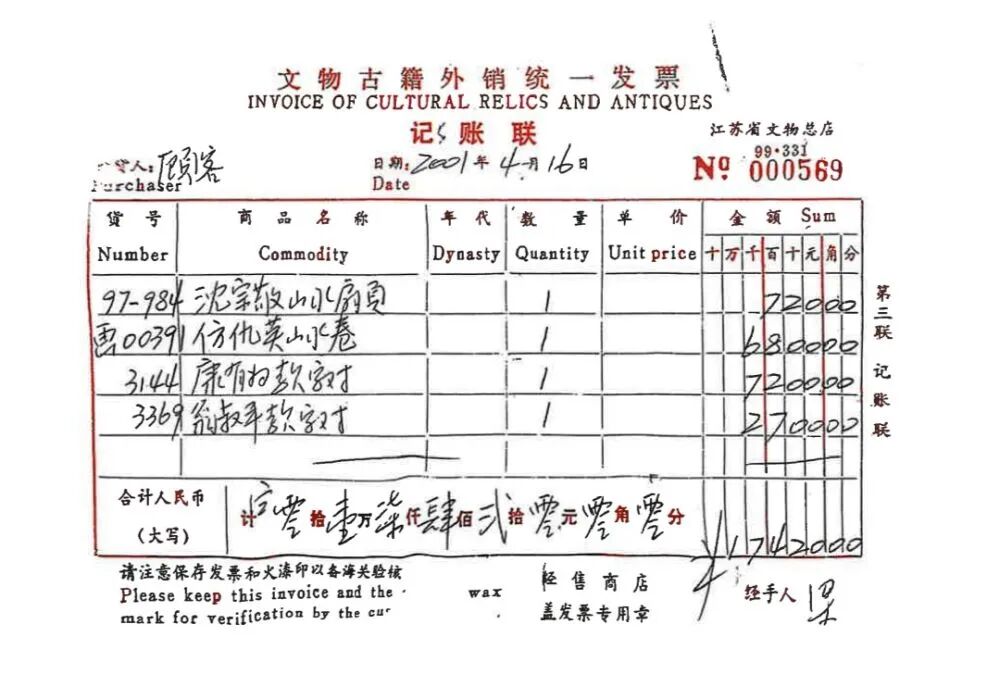 文物古籍外销统一发票
INVOICE OF CULTURAL RELICS AND ANTIQUES
记账联
江苏省文物总店
货人: 顾客
日期: 2001年4月16日
99·331
Nº 000569
Purchaser
Date
货号 商品名称 年代 数量 单价 金额 Sum
Number Commodity Dynasty Quantity Unit price 十万千百十元角分
97-984 沈宗敬山水扇页 1 72000
画00391 仿仇英山水卷 1 680000
3144 康有为款字对 1 720000
3369 翁叔平款字对 1 270000
合计人民币（大写） 计零拾壹万柒仟肆佰贰拾零元零角零分 ¥1742000
请注意保存发票和火漆印以备海关验核
Please keep this invoice and the wax
mark for verification by the cu
经售商店
盖发票专用章
经手人
第三联 记账联